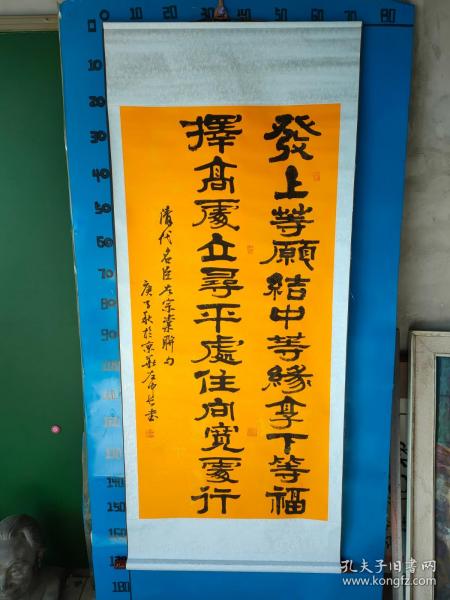 發上等願結中等緣享下等福
擇高處立尋平處住向寬處行
清代名臣左宗棠聯句
庚子秋於京華左
書
0 10 20 30 40 50 60 70 80
10
20
30
40
50
60
70
80
90
100
110
120
130
140
150
160
170
180
孔夫子旧书网
www.kongfz.com